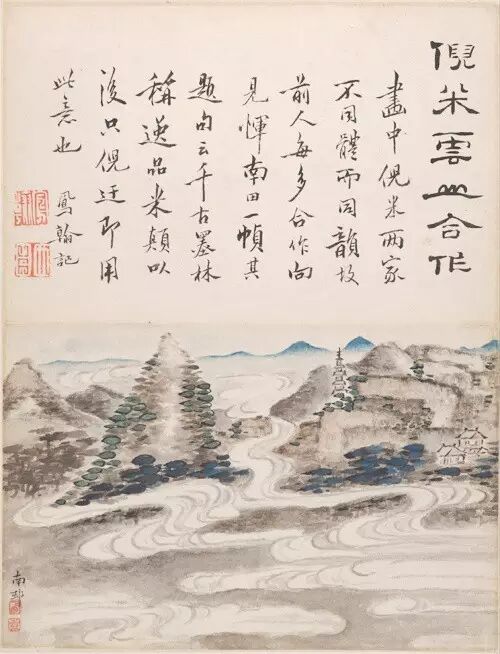 倪米雲山合作
畫中倪米兩家
不同體而同韻故
前人每多合作向
見惲南田一幀其
題句云千古墨林
稱逸品米顛以
後只倪迂即用
此意也 鳳翰記
南邨